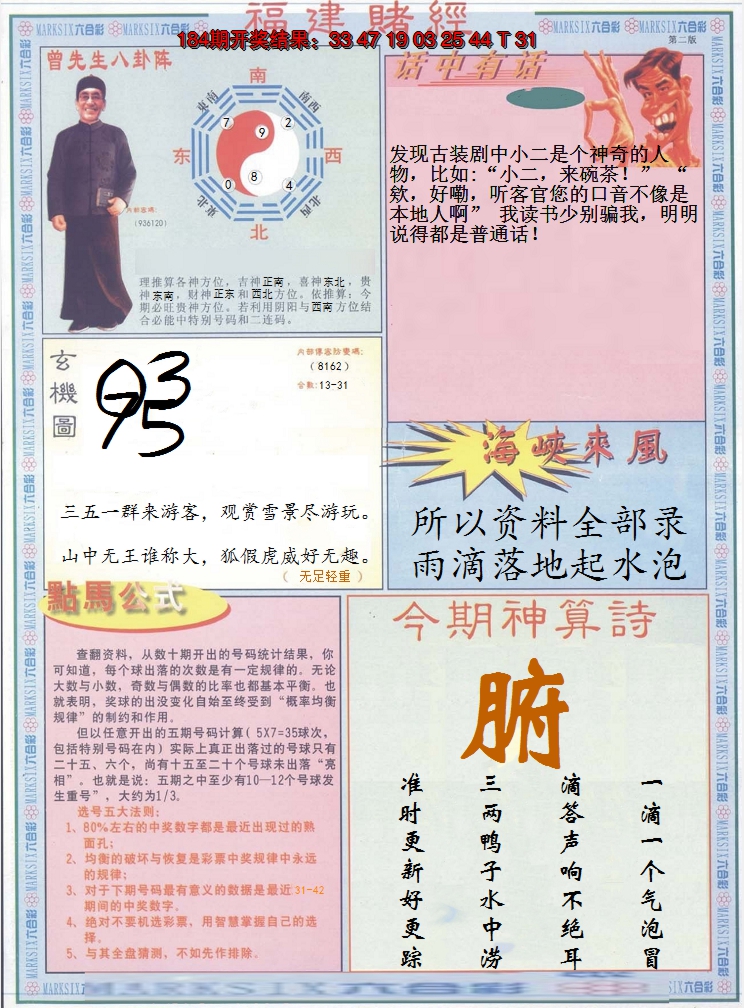 福建賭經
184期开奖结果：33 47 19 03 25 44 T 31
第二版
MARKSIX六合彩
曾先生八卦阵
南
東南
南西
东
西
東北
北西
北
7
9
2
0
8
4
内部密碼:
(936120)
理推算各神方位，吉神正南，喜神东北，贵
神东南，财神正东和西北方位。依推算：今
期必旺贵神方位。若利用阴阳与西南方位结
合必能中特别号码和二连码。
话中有话
发现古装剧中小二是个神奇的人
物，比如:“小二，来碗茶！” “
欸，好嘞，听客官您的口音不像是
本地人啊” 我读书少别骗我，明明
说得都是普通话！
玄
機
圖
(8162)
合數:13-31
三五一群来游客，观赏雪景尽游玩。
山中无王谁称大，狐假虎威好无趣。
( 无足轻重 )
海峽來風
所以资料全部录
雨滴落地起水泡
點馬公式
查翻资料，从数十期开出的号码统计结果，你
可知道，每个球出落的次数是有一定规律的。无论
大数与小数，奇数与偶数的比率也都基本平衡。也
就表明，奖球的出没变化自始至终受到“概率均衡
规律”的制约和作用。
但以任意开出的五期号码计算( 5X7=35球次，
包括特别号码在内) 实际上真正出落过的号球只有
二十五、六个，尚有十五至二十个号球未出落“亮
相”。也就是说：五期之中至少有10—12个号球发
生重号”，大约为1/3。
选号五大法则:
1、80%左右的中奖数字都是最近出现过的熟
面孔;
2、均衡的破坏与恢复是彩票中奖规律中永远
的规律;
3、对于下期号码最有意义的数据是最近31-42
期间的中奖数字。
4、绝对不要机选彩票，用智慧掌握自己的选
择。
5、与其全盘猜测，不如先作排除。
今期神算詩
腑
一滴一个气泡冒
滴答声响不绝耳
三两鸭子水中涝
准时更新好更踪